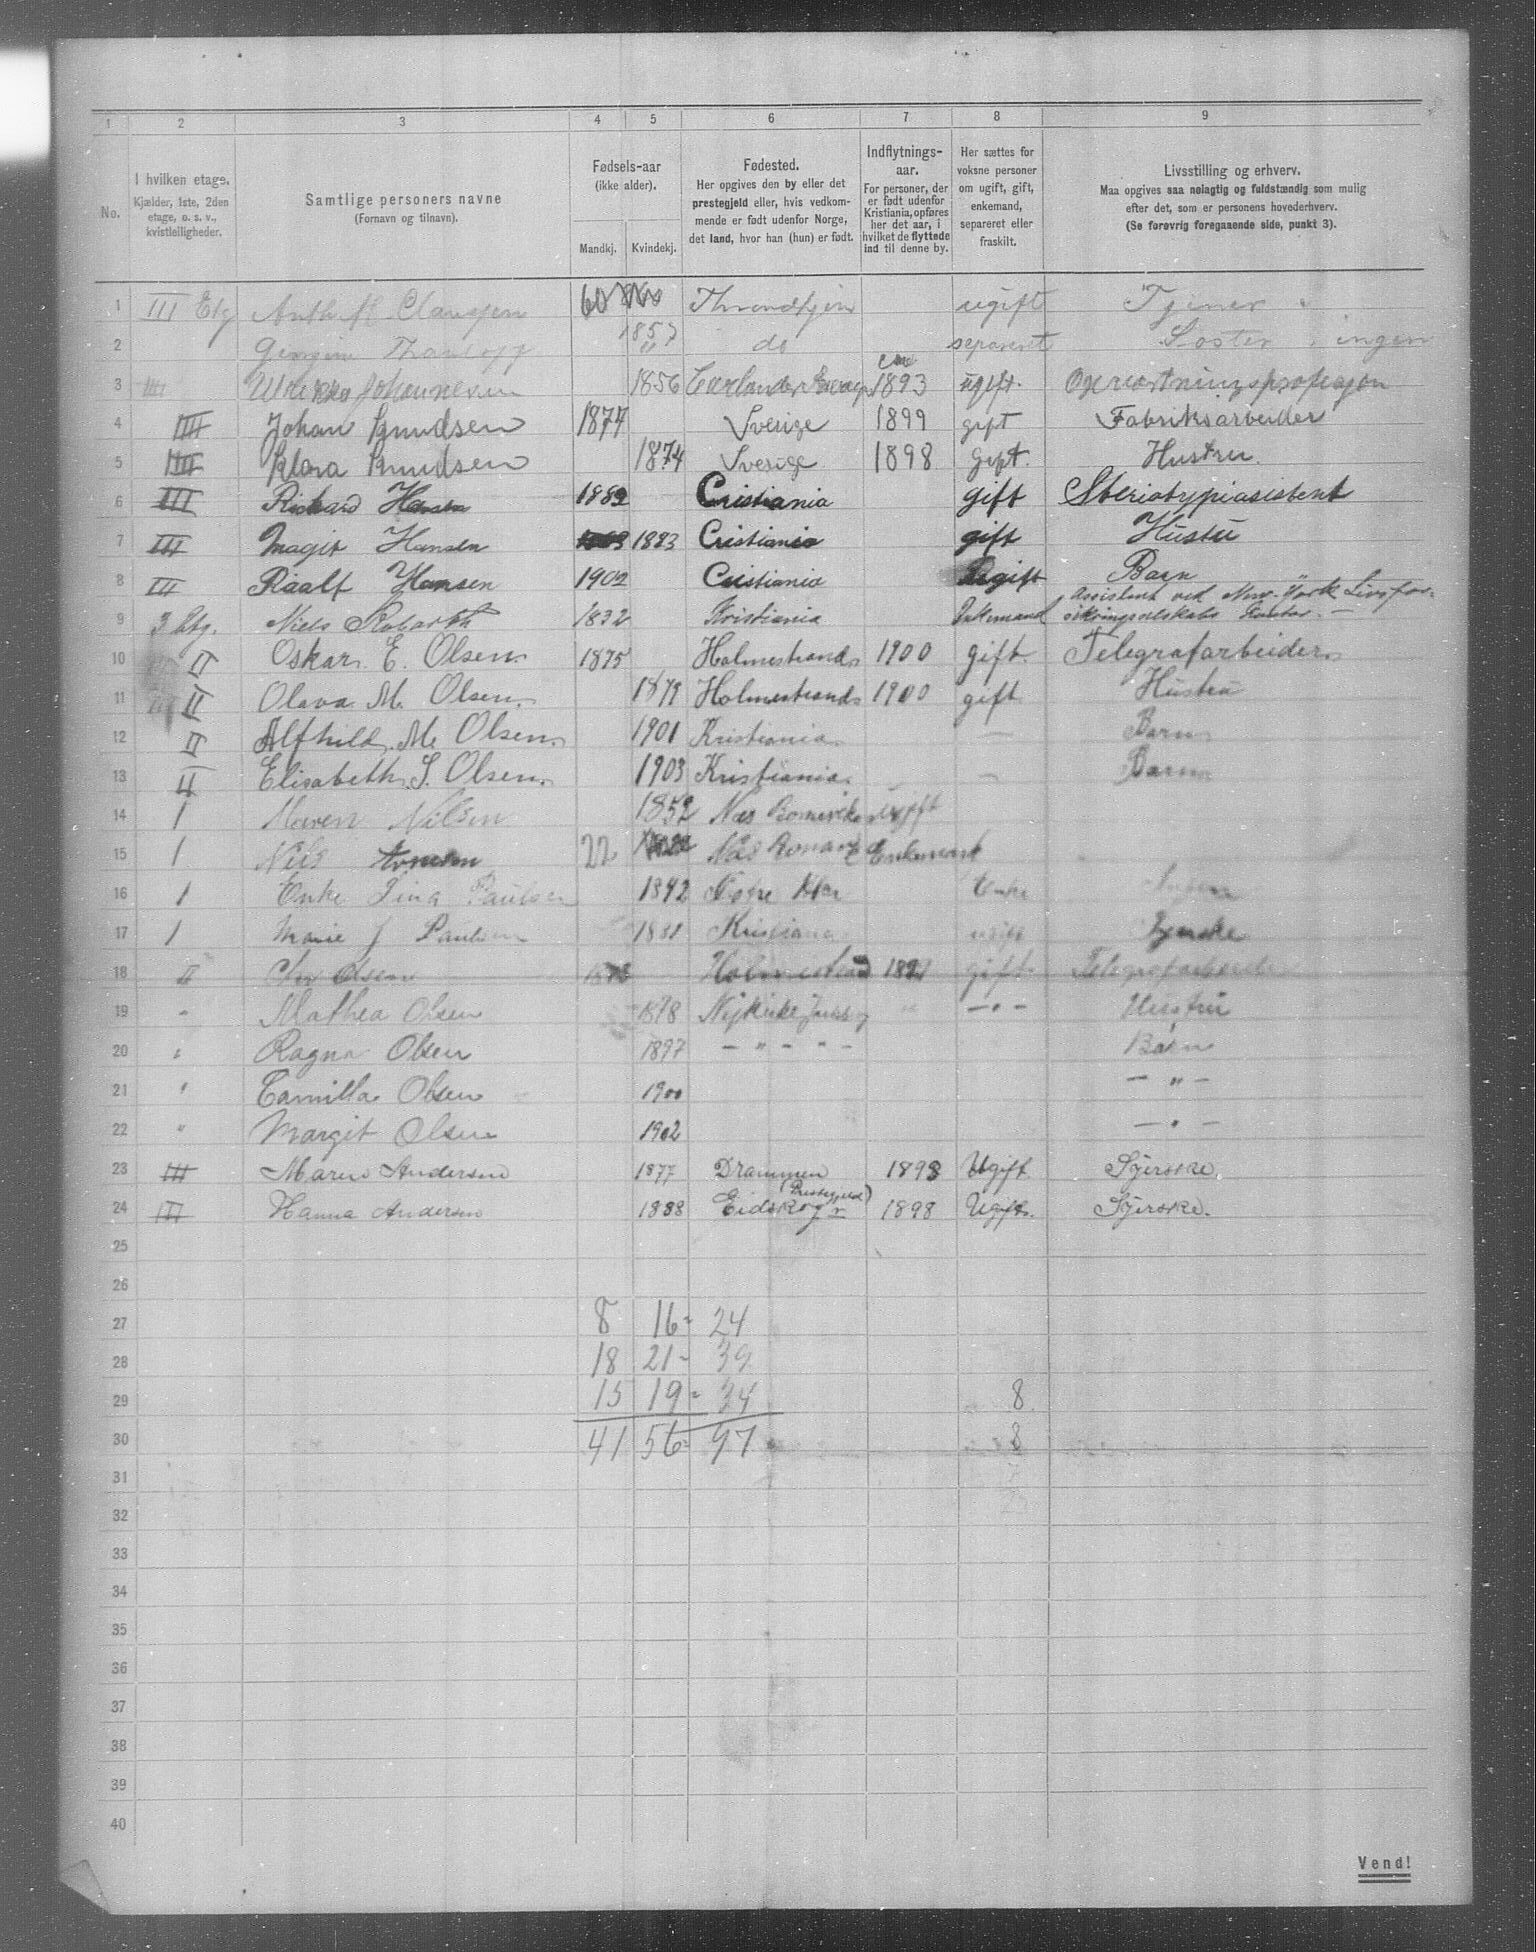 1 2 3 4 5 6 7 8 9
No.
I hvilken etage.
Kjælder, 1ste, 2den
etage, o. s. v.,
kvistleiligheder.
Samtlige personers navne
(Fornavn og tilnavn).
Fødsels-aar
(ikke alder).
Mandkj. Kvindekj.
Fødested.
Her opgives den by eller det
prestegjeld eller, hvis vedkom-
mende er født udenfor Norge,
det land, hvor han (hun) er født.
Indflytnings-
aar.
For personer, der
er født udenfor
Kristiania, opføres
her det aar, i
hvilket de flyttede
ind til denne by.
Her sættes for
voksne personer
om ugift, gift,
enkemand,
separeret eller
fraskilt.
Livsstilling og erhverv.
Maa opgives saa nøiagtig og fuldstændig som mulig
efter det, som er personens hovederhverv.
(Se forøvrig foregaaende side, punkt 3).
1 III Etg 60 Throndhjem ugift Tjener
2 1857 do separeret ingen
3 IIII Johannesen 1856 1893 ugift.
4 IIII Johan Knudsen 1877 Sverige 1899 gift Fabriksarbeider
5 IIII Klara Knudsen 1874 Sverige 1898 gift. Hustru.
6 III Rickard Hansen 1882 Cristiania gift Steriotypiasistent
7 III Magit Hansen 1883 Cristiania gift Hustu
8 III Raalf Hansen 1902 Cristiania Ugift Barn
9 3 Etg. Niels 1832 Kristiania Enkemand Assistent ved New-York Livsfor-
sikringselskabs Kontor. —
10 II Oskar. E. Olsen. 1875 Holmestrand 1900 gift. Telegrafarbeider
11 II Olava M. Olsen. 1879 Holmestrand 1900 gift. Hustru
12 II Alfhild. M. Olsen. 1901 Kristiania. — Barn
13 II Elisabeth. S. Olsen. 1903 Kristiania. — Barn
14 1 Maren Nilsen 1852 Næs Romerike ugift
15 1 Nils 22 Næs Enkemand
16 1 Enke Lina Paulsen 1842 Enke
17 1 Marie J Paulsen Kristiania ugift Syerske
18 II Olsen Holmestrand gift. Telegrafarbeid
19 " Mathea Olsen 1878 " — " — Hustru
20 " Ragna Olsen 1897 — " — " — Barn
21 " Camilla Olsen 1900 — " —
22 " Margit Olsen 1902 — " —
23 III Maren Andersen 1877 Drammen 1898 Ugift Syerske.
24 III Hanna Andersen 1888 Eidskog (Prestegjeld) 1898 Ugift. Syerske.
25
26
27 8 16 - 24
28 18 21 - 39
29 15 19 - 34 8
30 41 56 - 97 8
31
32
33
34
35
36
37
38
39
40
Vend!